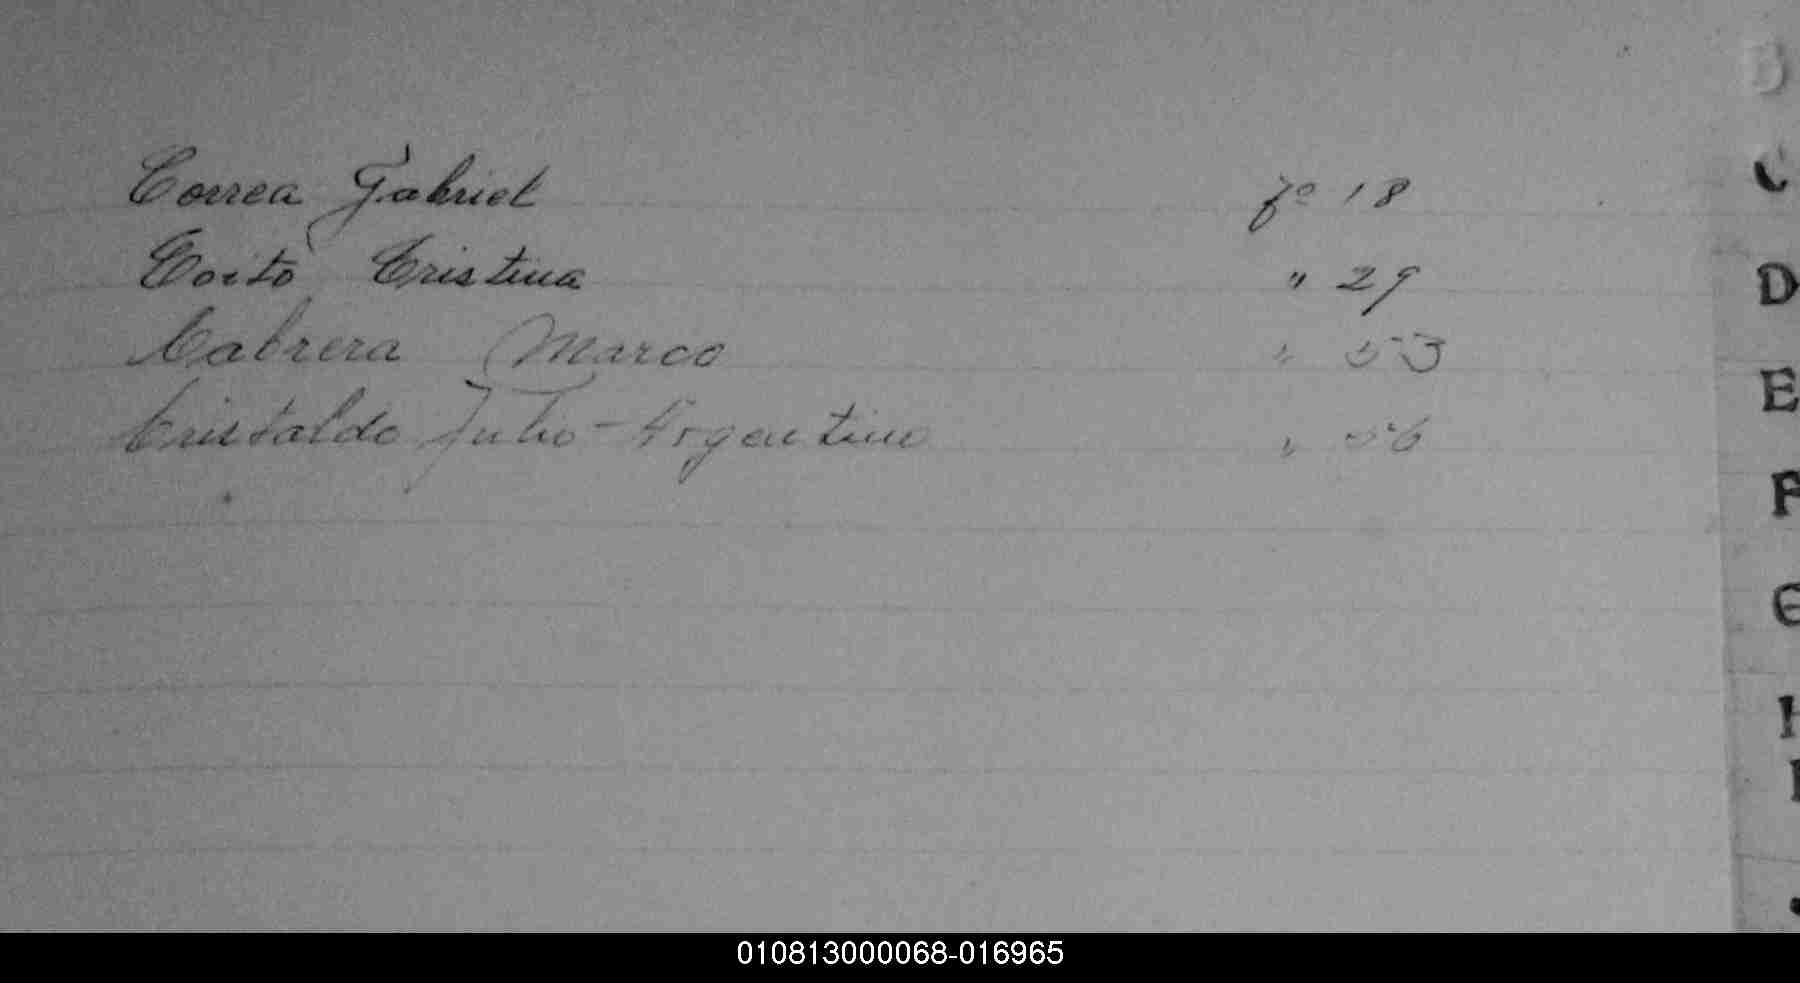 Correa Gabriel fº 18
Coito Cristina " 29
Cabrera Marco " 53
Cristaldo Julio-Argentino " 56
B
C
D
E
F
G
H
I
010813000068-016965